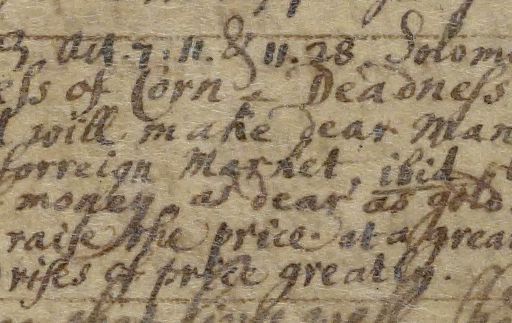 Act. 7. 11. & 11. 28. Solom
ess of Corn - Deadness
will make dear Man
forreign Market, ibid
money, as dear as gold
raise the price. at a grea
rises of price greatly.